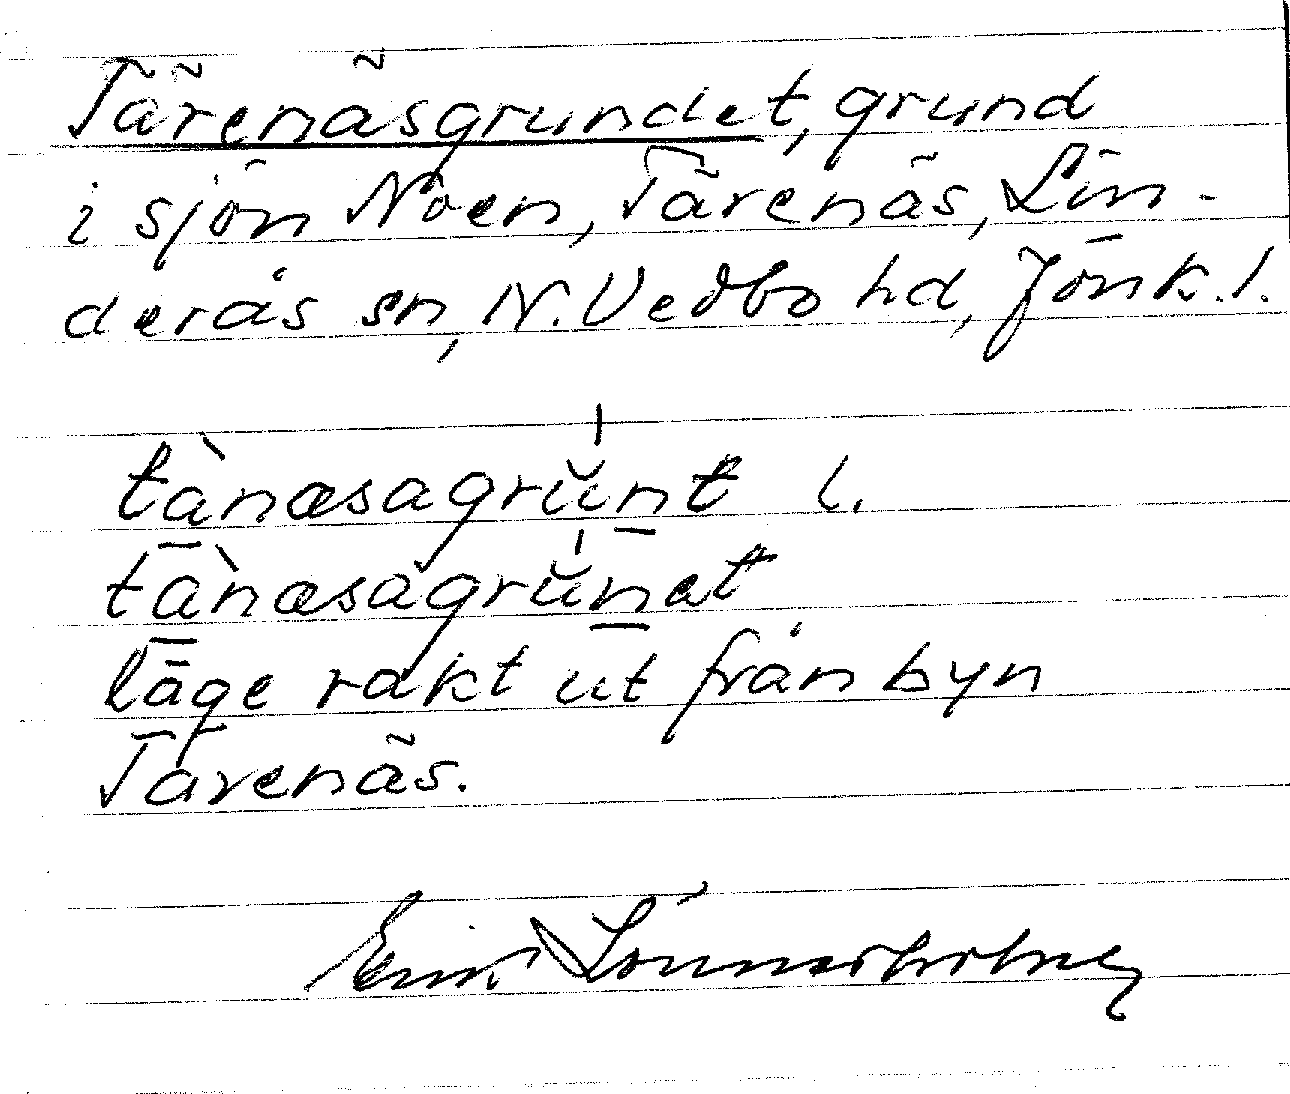 Tärenäsgrundet, grund
i sjön Nöen, Tärenäs, Lin-
derås sn, N. Vedbo hd, Jönk. l.
tànæsagrŭnt l.
tànæsagrŭnat
läge rakt ut från byn
Tärenäs.
Erik Lönnerholm